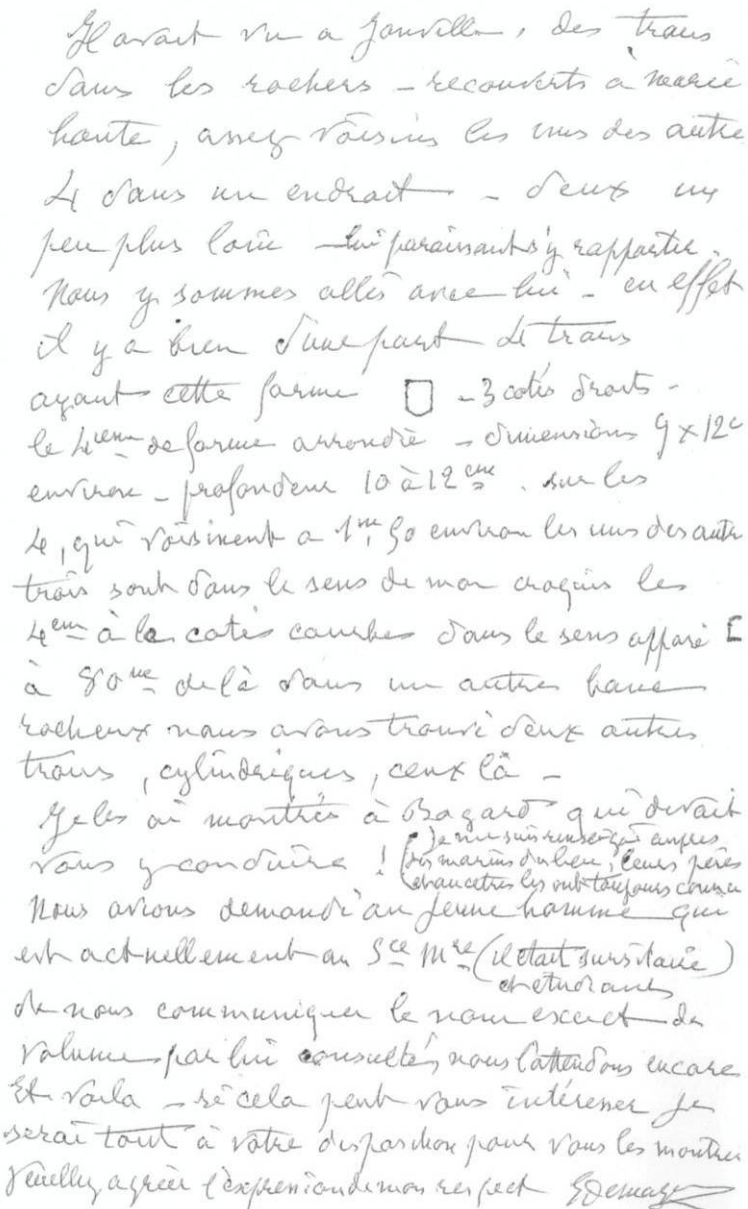 Il avait vu a Jonville, des trous
dans les rochers – recouverts à marée
haute, assez voisins les uns des autre
4 dans un endroit – deux un
peu plus loin – lui paraissant s'y rapporter.
Nous y sommes allés avec lui – en effet
il y a bien d'une part 4 trous
ayant cette forme – 3 cotés droits –
le 4ieme de forme arrondie – dimensions 9 x 12c
environ – profondeur 10 à 12 cme. sur les
4, qui voisinent a 1m,50 environ les uns des autr
trois sont dans le sens de mon croquis les
4em à les cotés courbes dans le sens opposé
à 80me de là dans un autres banc
rocheux nous avons trouvé deux autres
trous, cylindriques, ceux là –
Je les ai montrés à Bagard qui devait
vous y conduire ! (Je me suis renseigné auprès
des marins du lieu, leurs pères
et ancetres les ont toujours connu
Nous avions demandé au jeune homme qui
est actuellement au Sce Mre (il était sursitaire)
et etudiants
de nous communiquer le nom exact du
volume par lui consulté, nous l'attendons encore
Et voila – si cela peut vous intéresser je
serai tout à votre disposition pour vous les montrer
Veuillez agréer l'expression de mon respect